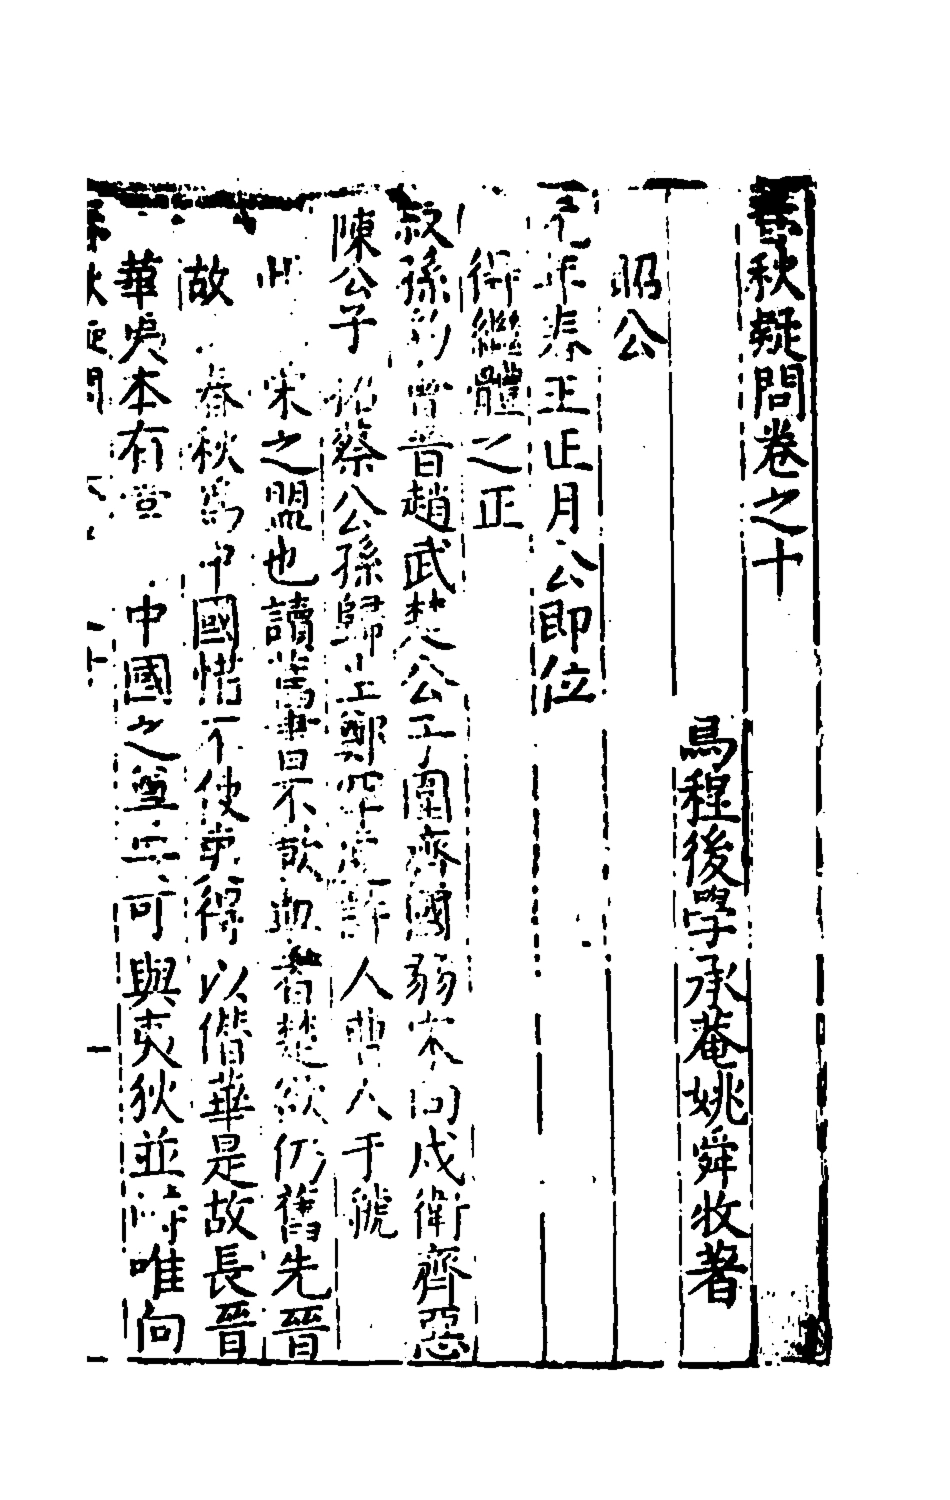 春秋疑問卷之十
烏程後學承菴姚舜牧著
昭公
元年春王正月公即位
得繼體之正
叔孫豹會晉趙武楚公子圍齊國弱宋向戌衛齊惡
陳公子招蔡公孫歸生鄭罕虎許人曹人于虢
宋之盟也讀舊書不歃血者楚欲仍舊先晉
故春秋為中國惜不使夷得以僭華是故長晉
華夷本有 中國之 可與夷狄並 唯向